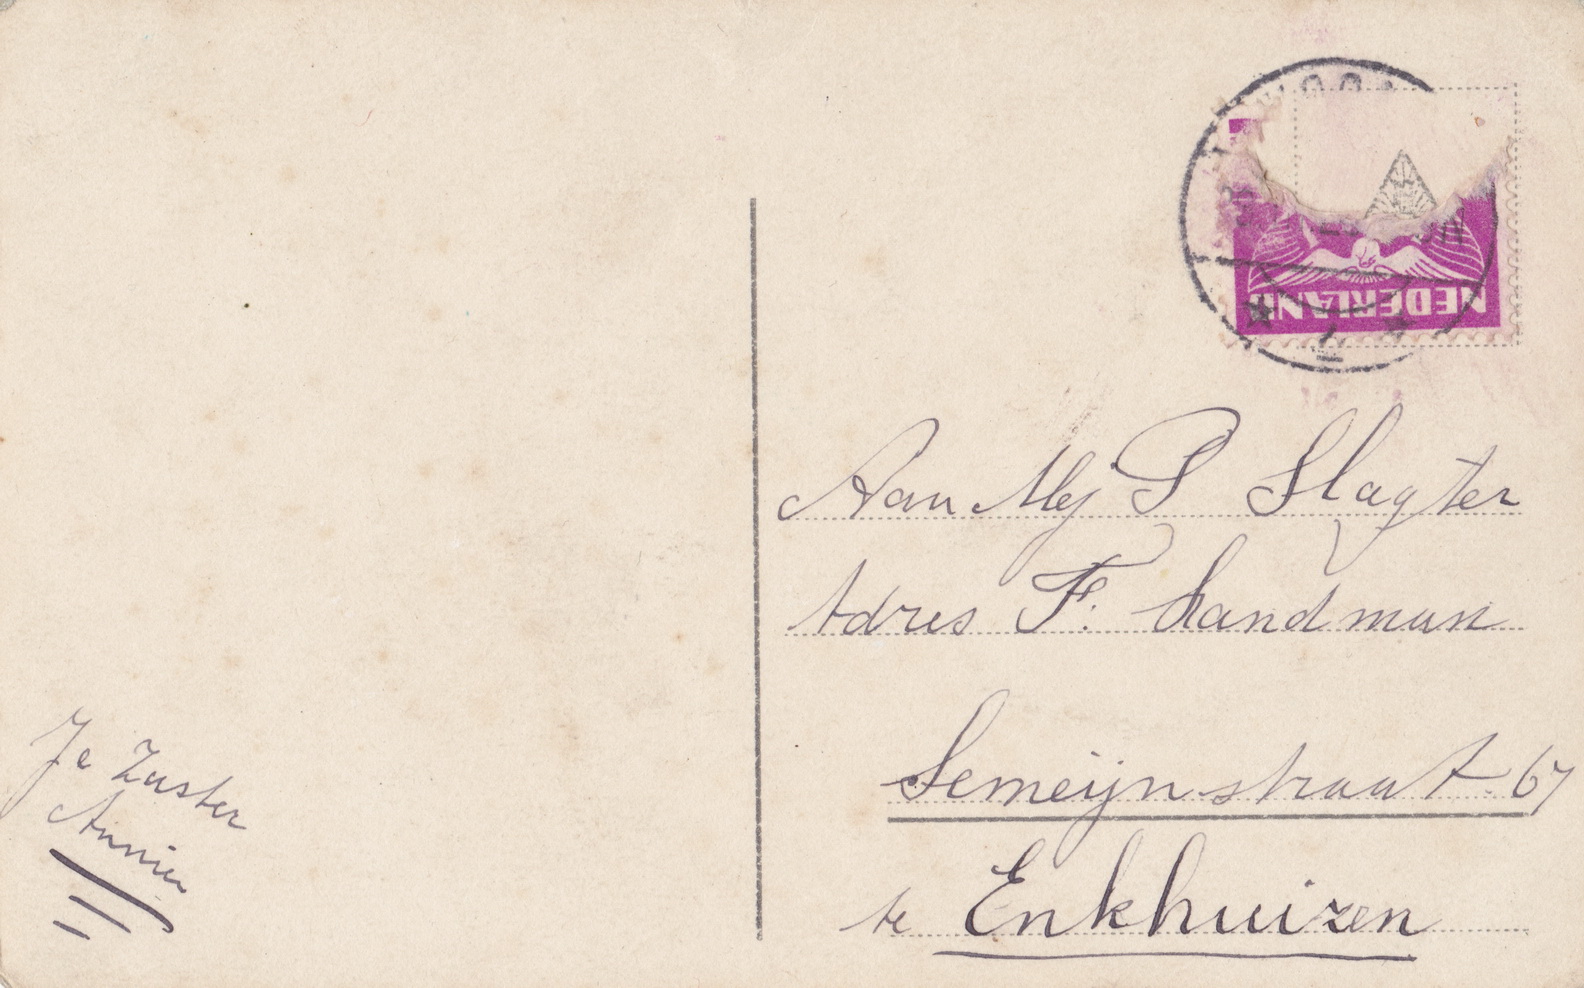 NEDERLAND
Aan Mej P Slagter
Adres F. Handman
Semeijnstraat 67
te Enkhuizen
Je Zuster
Annie